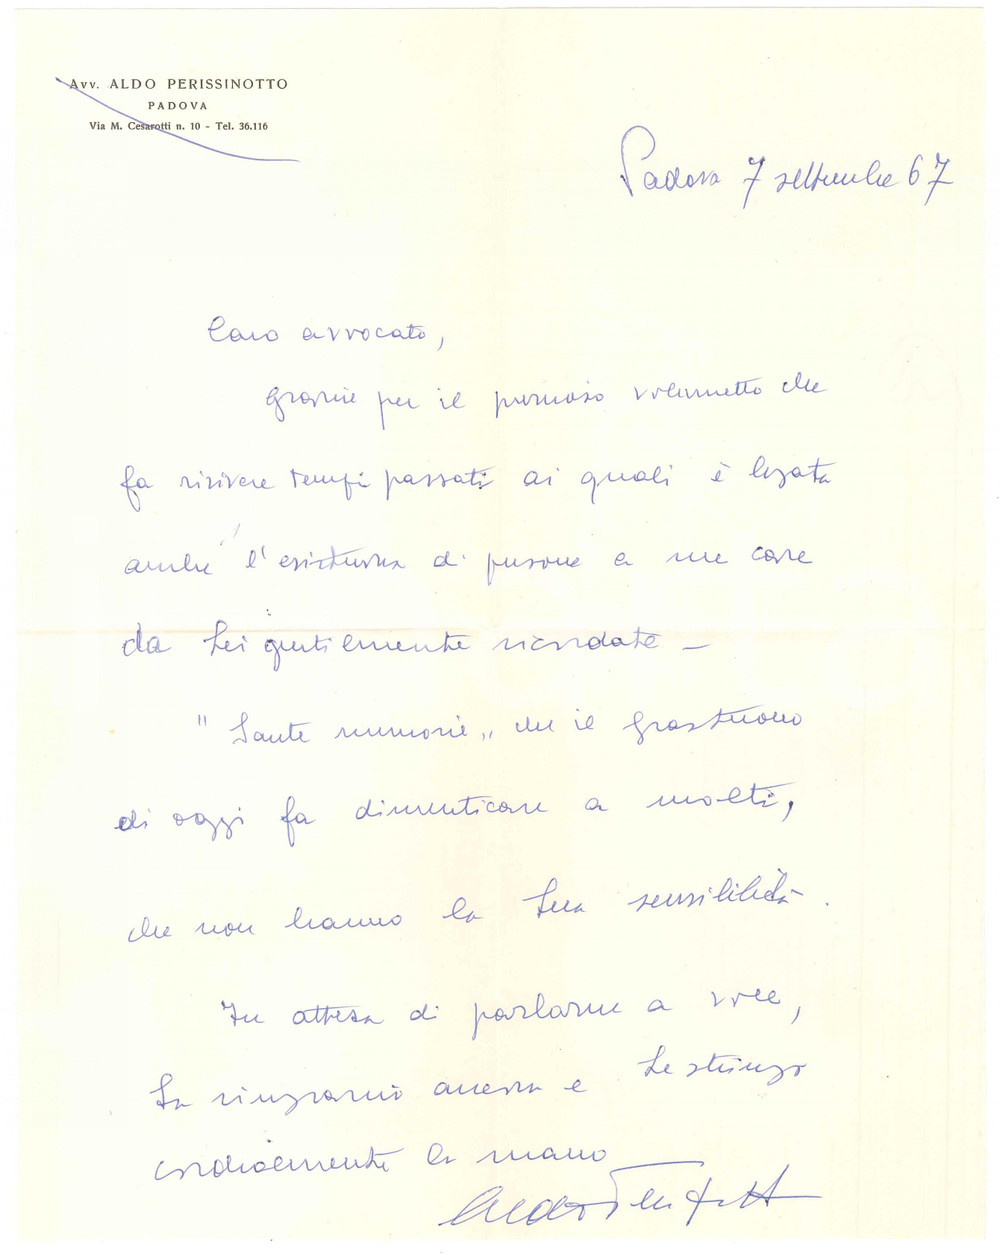 Avv. ALDO PERISSINOTTO
PADOVA
Via M. Cesarotti n. 10 - Tel. 36.116
Padova 7 settembre 67
Caro avvocato,
grazie per il prezioso volumetto che
fa rivivere tempi passati ai quali è legata
anche l'esistenza di persone a me care
da Lei gentilmente ricordate -
"Sante memorie„ che il frastuono
di oggi fa dimenticare a molti,
che non hanno la Sua sensibilità.
In attesa di parlarne a voce,
La ringrazio ancora e Le stringo
cordialmente la mano
Aldo